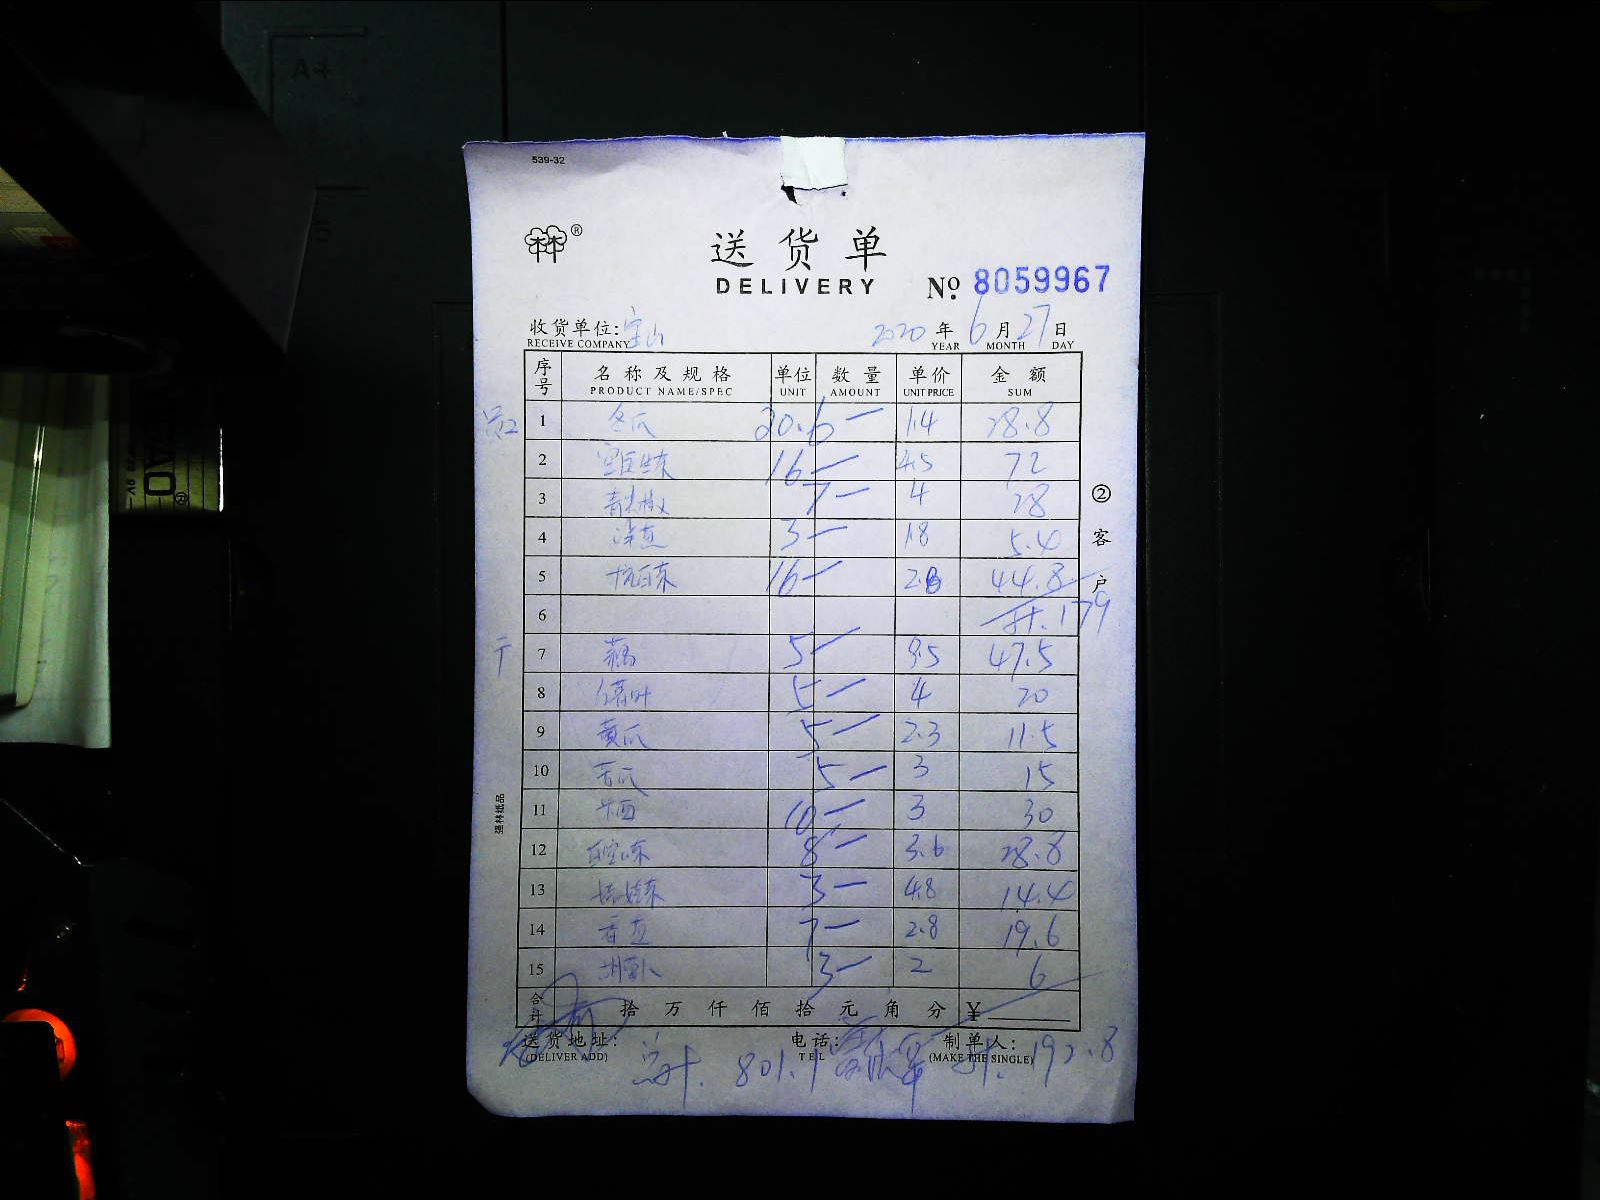 539-32
林林®
送货单
DELIVERY
No. 8059967
收货单位: 宝山 2020 年 6 月 27 日
RECEIVE COMPANY YEAR MONTH DAY
序号 名称及规格 单位 数量 单价 金额
PRODUCT NAME/SPEC UNIT AMOUNT UNIT PRICE SUM
1 冬瓜 20.6 1.4 28.8
2 16 4.5 72
3 青尖椒 7 4 28
4 洋芋 3 1.8 5.4
5 杭白菜 16 2.8 44.8
6 计.179
7 藕 5 9.5 47.5
8 红薯叶 5 4 20
9 黄瓜 5 2.3 11.5
10 苦瓜 5 3 15
11 10 3 30
12 8 3.6 28.8
13 娃娃菜 3 4.8 14.4
14 7 2.8 19.6
15 胡萝卜 3 2 6
合计 拾 万 仟 佰 拾 元 角 分 ¥
送货地址: 电话: 制单人:
(DELIVER ADD) TEL (MAKE THE SINGLE)
总计. 801.1 计. 192.8
② 客户
强林纸品